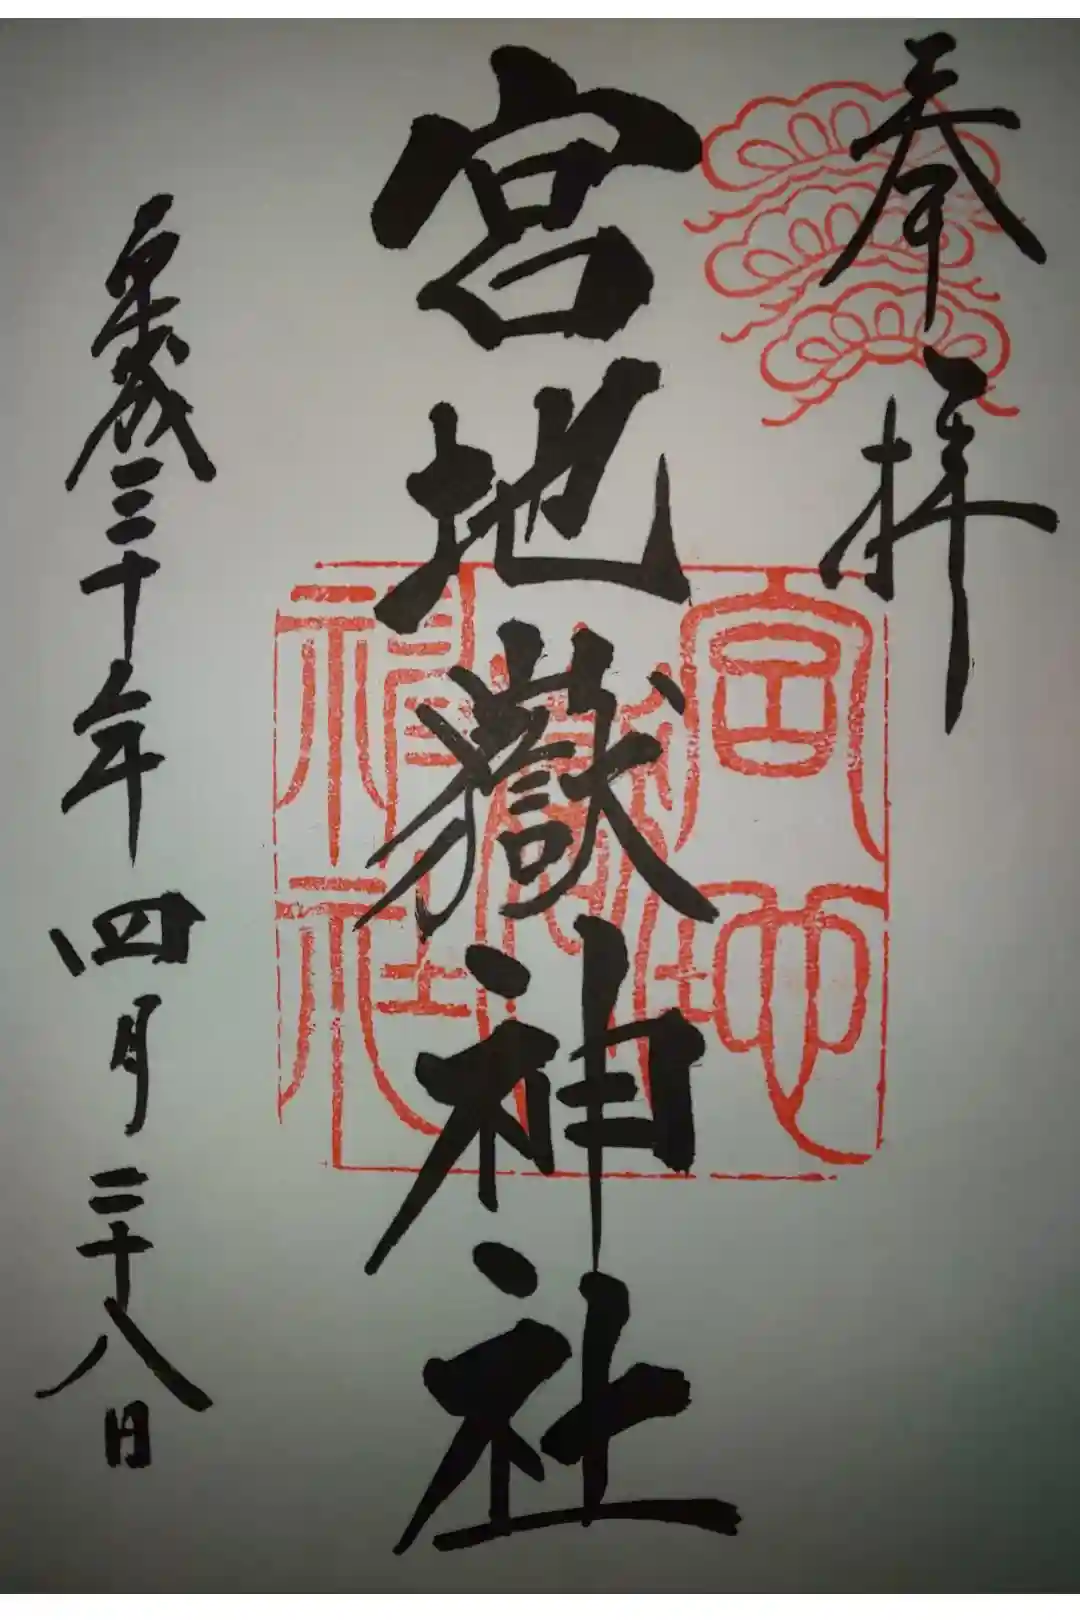 奉拝
宮地嶽神社
宮地
嶽
神社
平成三十年四月二十八日